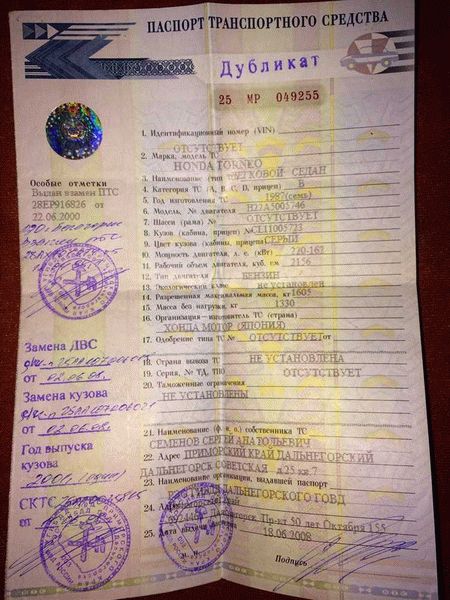 ПАСПОРТ ТРАНСПОРТНОГО СРЕДСТВА
Дубликат
25 МР 049255
1. Идентификационный номер (VIN)
ОТСУТСТВУЕТ
2. Марка, модель ТС
HONDA TORNEO
3. Наименование (тип ЛЕГКОВОЙ СЕДАН
4. Категория ТС (А, В, С, D, прицеп) В
5. Год изготовления ТС 1997(семь)
6. Модель, № двигателя H22A5005746
7. Шасси (рама) № ОТСУТСТВУЕТ
8. Кузов (кабина, прицеп) № CL11005723
9. Цвет кузова (кабины, прицепа) СЕРЫЙ
10. Мощность двигателя, л. с. (кВт) 220-162
11. Рабочий объем двигателя, куб. см 2156
12. Тип двигателя БЕНЗИН
13. Экологический класс не установлен
14. Разрешенная максимальная масса, кг 1605
15. Масса без нагрузки, кг 1330
16. Организация-изготовитель ТС (страна)
ХОНДА МОТОР (ЯПОНИЯ)
17. Одобрение типа ТС № ОТСУТСТВУЕТ от
18. Страна вывоза ТС НЕ УСТАНОВЛЕНА
19. Серия, № ТД, ТПО ОТСУТСТВУЕТ
20. Таможенные ограничения
НЕ УСТАНОВЛЕНЫ
21. Наименование (ф. и. о.) собственника ТС
СЕМЕНОВ СЕРГЕЙ АНАТОЛЬЕВИЧ
22. Адрес ПРИМОРСКИЙ КРАЙ ДАЛЬНЕГОРСКИЙ
ДАЛЬНЕГОРСК СОВЕТСКАЯ д.25 кв.7
23. Наименование организации, выдавшей паспорт
ГИБДД ДАЛЬНЕГОРСКОГО ГОВД
24. Адрес
Дальнегорск Пр-кт 50 лет Октября 155
25. Дата выдачи 18.06.2008
Подпись
Особые отметки
Выдан взамен ПТС
28ЕР916826 от
22.06.2000
Замена ДВС
от 02.06.08г.
Замена кузова
от 02.06.08г.
Год выпуска
кузова
2001
СКТС
от